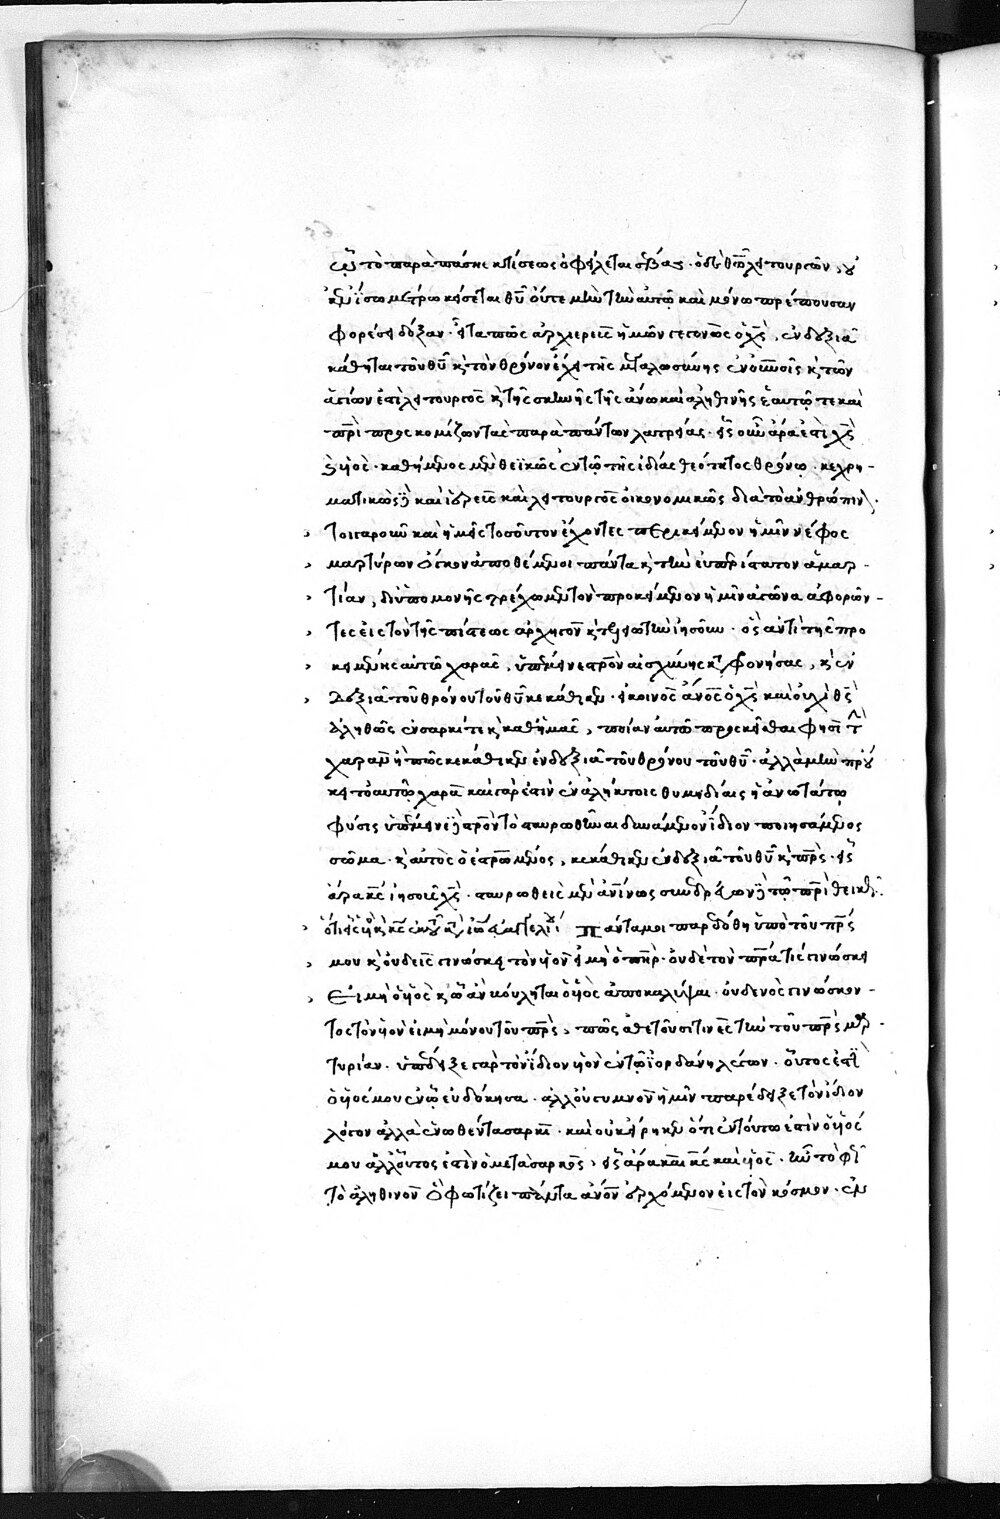 ᾧ τὸ παρὰ πάσης κτίσεως ὀφείλεται σέβας · ὁ δὲ θεῷ λειτουργῶν, οὐ
κἂν ἴσῳ μέτρῳ κείσεται θῦ οὔτε μὴν τὴν αὐτῷ καὶ μόνῳ πρέπουσαν
φορέσει δόξαν · εἶτα πῶς ἀρχιερεὺς ἡμῶν γεγονὼς ὁ χς, ἐν δεξιᾷ
κάθηται τοῦ θῦ κ τὸν θρόνον ἔχει τῆς μεγαλωσύνης ἐν οὐνοῖς κ τῶν
ἁγίων ἐστὶ λειτουργὸς κ τῆς σκηνῆς τῆς ἄνω καὶ ἀληθινῆς ἑαυτῷ τε καὶ
πρι προσκομίζοντας παρὰ πάντων λατρείας · εἷς οὖν ἄρα ἐστὶ χς
κ υἱὸς · καθήμενος μὲν θεϊκῶς ἐν τῷ τῆς ἰδίας θεότητος θρόνῳ · κεχρη-
ματικὼς δὲ καὶ ἱερεὺς καὶ λειτουργὸς οἰκονομικῶς διὰ τὸ ἀνθρώπινον.
τοιγαροῦν καὶ ἡμεῖς τοσοῦτον ἔχοντες περικείμενον ἡμῖν νέφος
μαρτύρων ὄγκον ἀποθέμενοι πάντα κ τὴν εὐπερίστατον ἁμαρ-
τίαν, δι ὑπομονῆς τρέχωμεν τὸν προκείμενον ἡμῖν ἀγῶνα ἀφορῶν-
τες εἰς τὸν τῆς πίστεως ἀρχηγὸν κ τελειωτὴν ἰησοῦν · ὃς ἀντὶ τῆς προ
κειμένης αὐτῷ χαρᾶς, ὑπέμεινε σταυρὸν αἰσχύνης καταφρονήσας, κ ἐν
δεξιᾷ τοῦ θρόνου τοῦ θῦ κεκάθικεν · εἰ κοινὸς ἄνος ὁ χς καὶ οὐχὶ θς
ἀληθῶς ἐν σαρκί τε κ καθ ἡμᾶς, ποίαν αὐτῷ προσκεῖσθαι φησὶ τὴν
χαρὰν ἢ πῶς κεκάθικεν ἐν δεξιᾷ τοῦ θρόνου τοῦ θῦ · ἀλλὰ μὴν
φύσις ὑπέμεινε δὲ σταυρὸν τὸ σταυρωθῆναι δυνάμενον ἴδιον ποιησάμενος
σῶμα · κ αὐτὸς ὁ ἐσταυρωμένος, κεκάθικεν ἐν δεξιᾷ τοῦ θῦ κ πρς · εἷς
ἄρα κς ἰησοῦς χς · σταυρωθεὶς μὲν ἀνίνως συνεδρεύων δὲ τῷ πρι θεικῶς.
Πάντα μοι παρεδόθη ὑπὸ τοῦ πρς
μου κ οὐδεὶς γινώσκει τὸν υἱὸν εἰ μὴ ὁ πηρ · οὐδὲ τὸν πρα τὶς γινώσκει
Εἰ μὴ ὁ υἱὸς κ ᾧ ἂν βούληται ὁ υἱὸς ἀποκαλύψαι · οὐδενὸς γινώσκον-
τος τὸν υἱὸν εἰ μὴ μόνου τοῦ πρς, πῶς ἀθετοῦσι τινες τὴν τοῦ πρς μαρ-
τυρίαν · ὑπέδειξε γὰρ τὸν ἴδιον υἱὸν ἐν τῷ ἰορδάνη λέγων · οὗτος ἐστὶν
ὁ υἱός μου ἐν ᾧ εὐδόκησα · ἀλλ οὐ γυμνὸν ἡμῖν παρέδειξε τὸν ἴδιον
λόγον ἀλλὰ ἑνωθέντα σαρκὶ · καὶ οὐκ εἴρηκεν ὅτι ἐν τούτῳ ἐστὶν ὁ υἱός
μου ἀλλ οὗτος ἐστὶν ὁ μετὰ σαρκὸς, εἷς ἄρα καὶ κς καὶ υἱὸς · ἦν τὸ φῶς
τὸ ἀληθινὸν ὃ φωτίζει πάντα ἄνον ἐρχόμενον εἰς τὸν κόσμον · ἐν